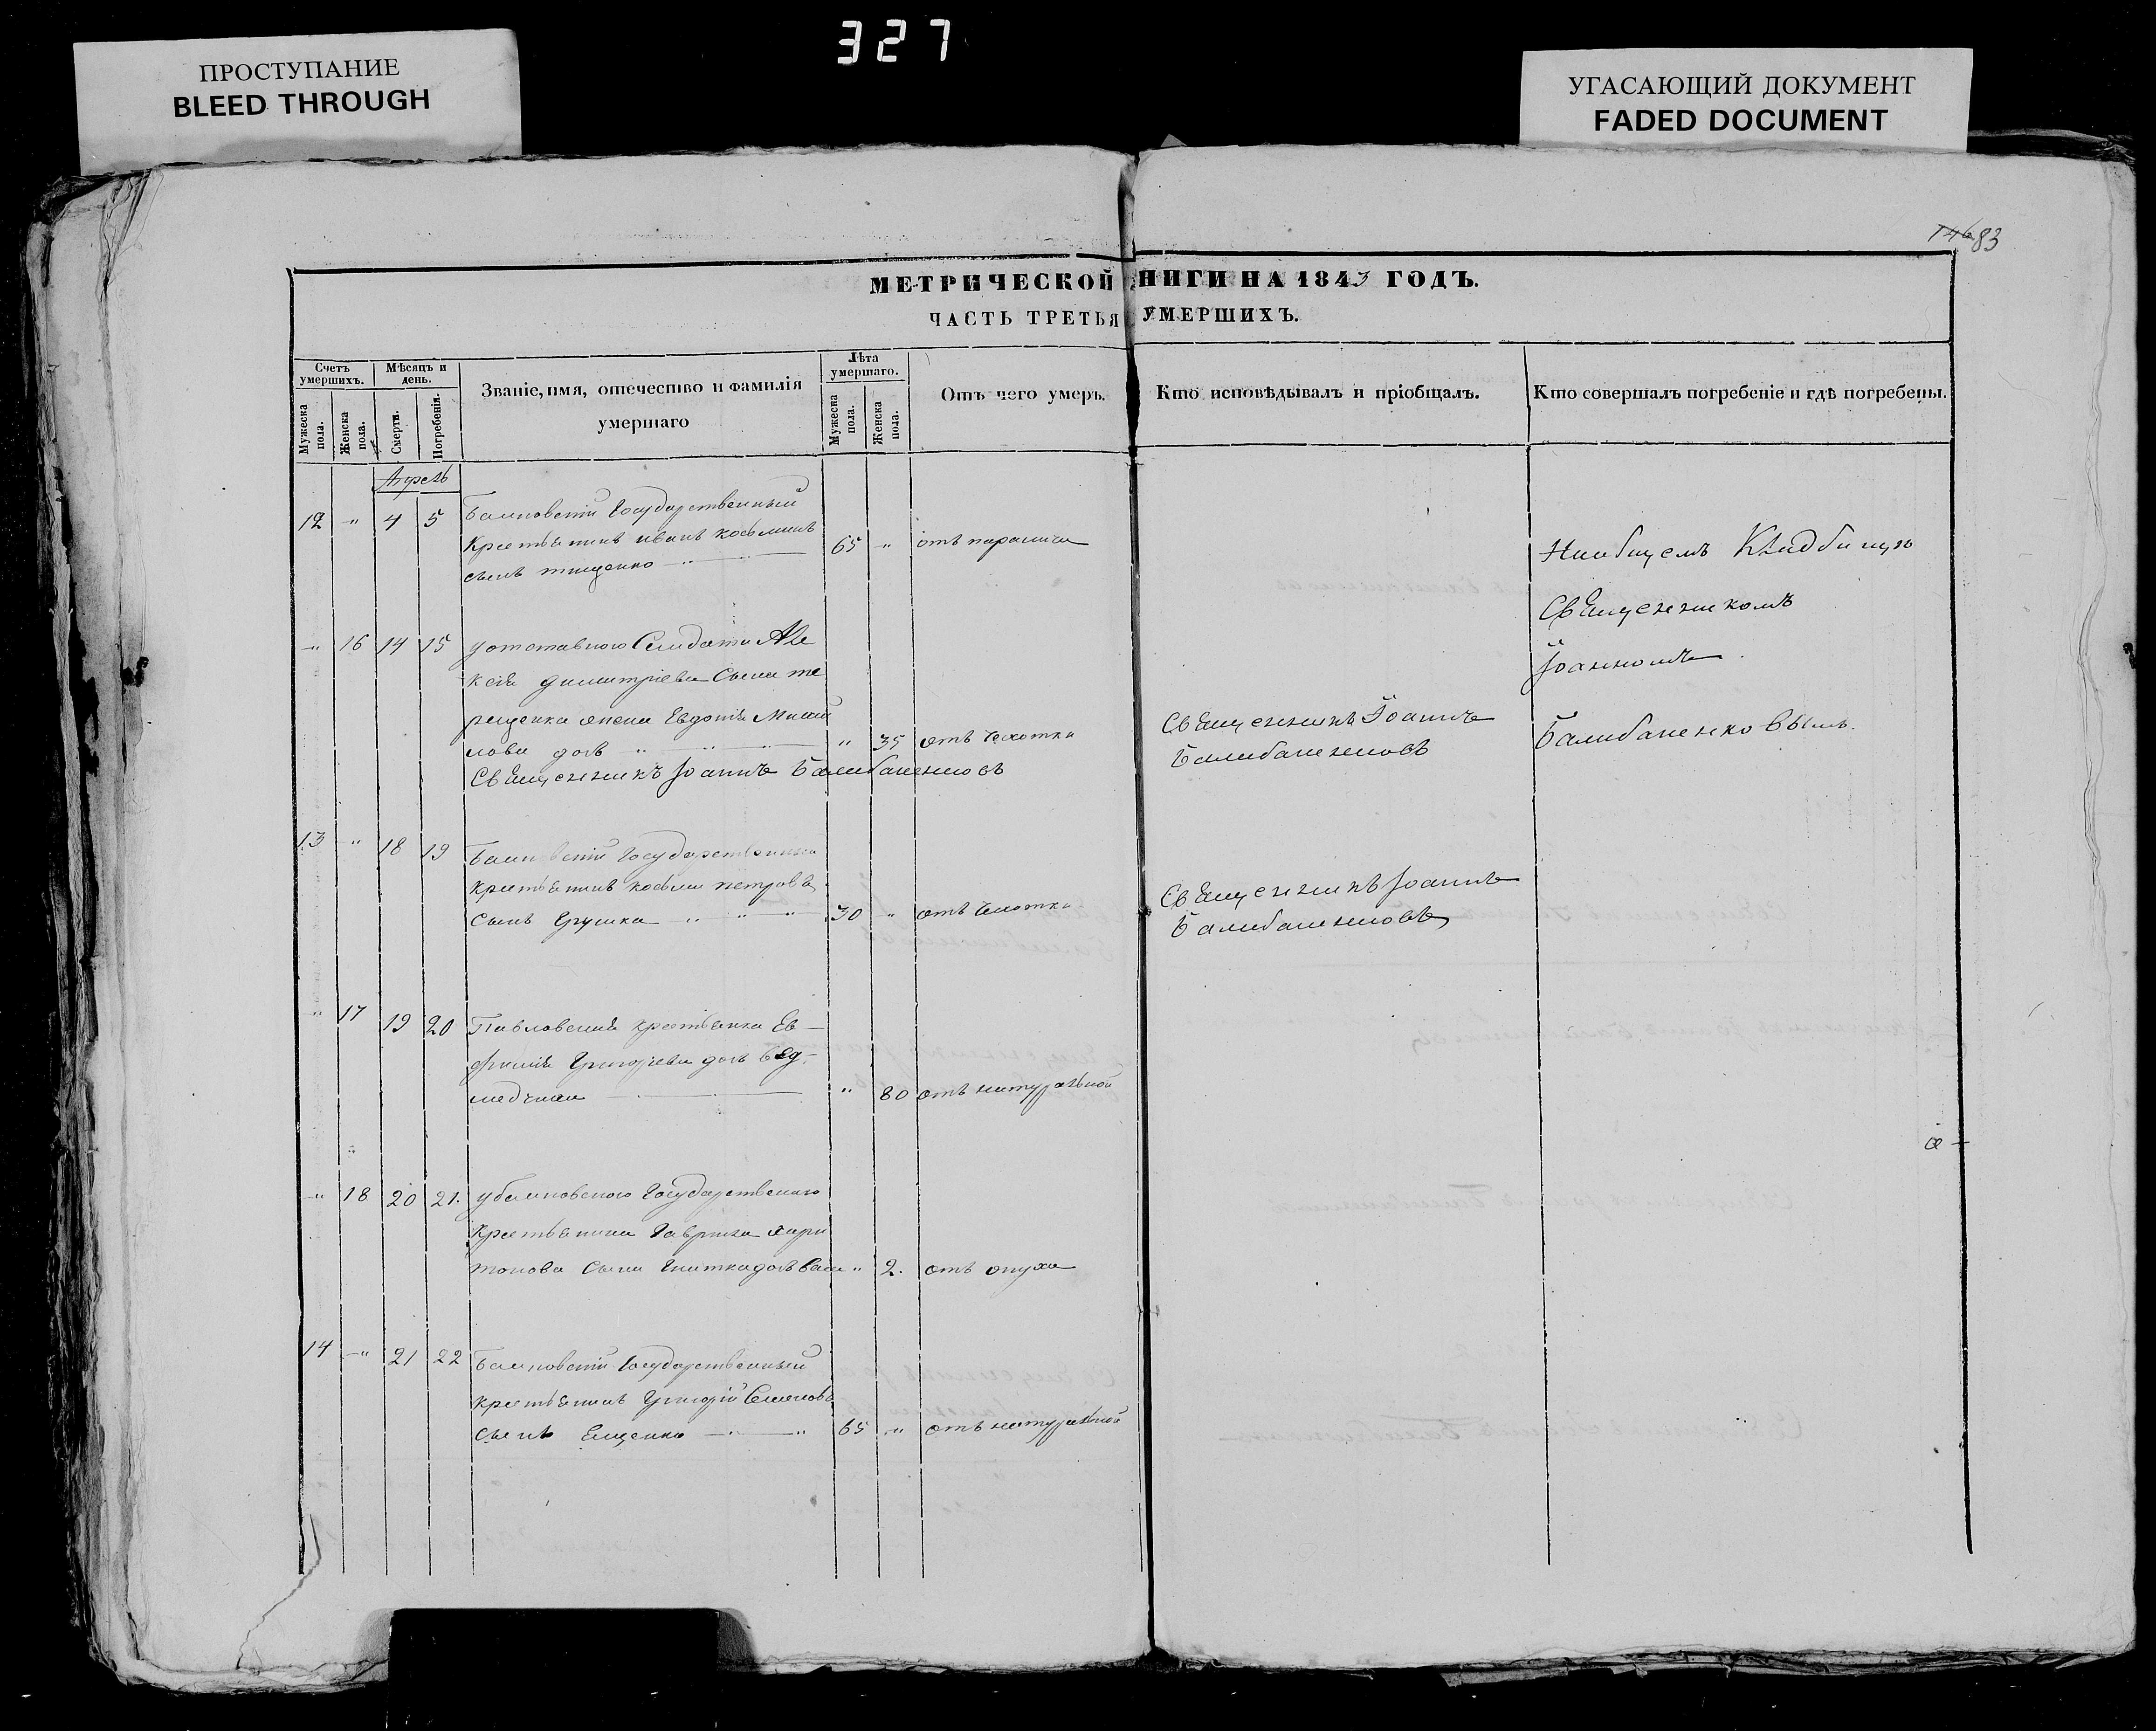 327
ПРОСТУПАНИЕ
BLEED THROUGH
УГАСАЮЩИЙ ДОКУМЕНТ
FADED DOCUMENT
146 83
МЕТРИЧЕСКОЙ КНИГИ НА 1843 ГОДЪ.
ЧАСТЬ ТРЕТЬЯ УМЕРШИХЪ.
Счетъ умершихъ.
Мужеска пола.
Женска пола.
Мѣсяцъ и день.
Смерти.
Погребенія.
Званіе, имя, отечество и фамилія умершаго
Лѣта умершаго.
Мужеска пола.
Женска пола.
Отъ чего умеръ.
Кто исповѣдывалъ и пріобщалъ.
Кто совершалъ погребеніе и гдѣ погребены.
Апрель
12 " 4 5 Государственный
Крестьянинъ иванъ козьминъ
сынъ тищенко 65 " отъ паралича
На общемъ Кладбищѣ
Священникомъ
Іоанномъ
Балабаненковымъ.
" 16 14 15 у отставного Солдата Але
ксѣя димитріева Сына те
рещенка жена Евдокія Михаи
лова дочь " 35 отъ чахотки
Священникъ Іоаннъ Балабаненковъ
Священникъ Іоаннъ
Балабаненковъ
13 " 18 19 Государственный
крестьянинъ козьма петровъ
Сынъ Грушка 30 " отъ чахотки
Священникъ Іоаннъ
Балабаненковъ
" 17 19 20 Павловская крестьянка Ев-
фимія Григорьева дочь
" 80 отъ натуральной
" 18 20 21. Государственного
Крестьянина Гаврила хари
тонова Сына дочь " 2. отъ опуха
14 " 21 22 Государственный
крестьянинъ Григорій Семеновъ
Сынъ Ященко 65 " отъ натуральной